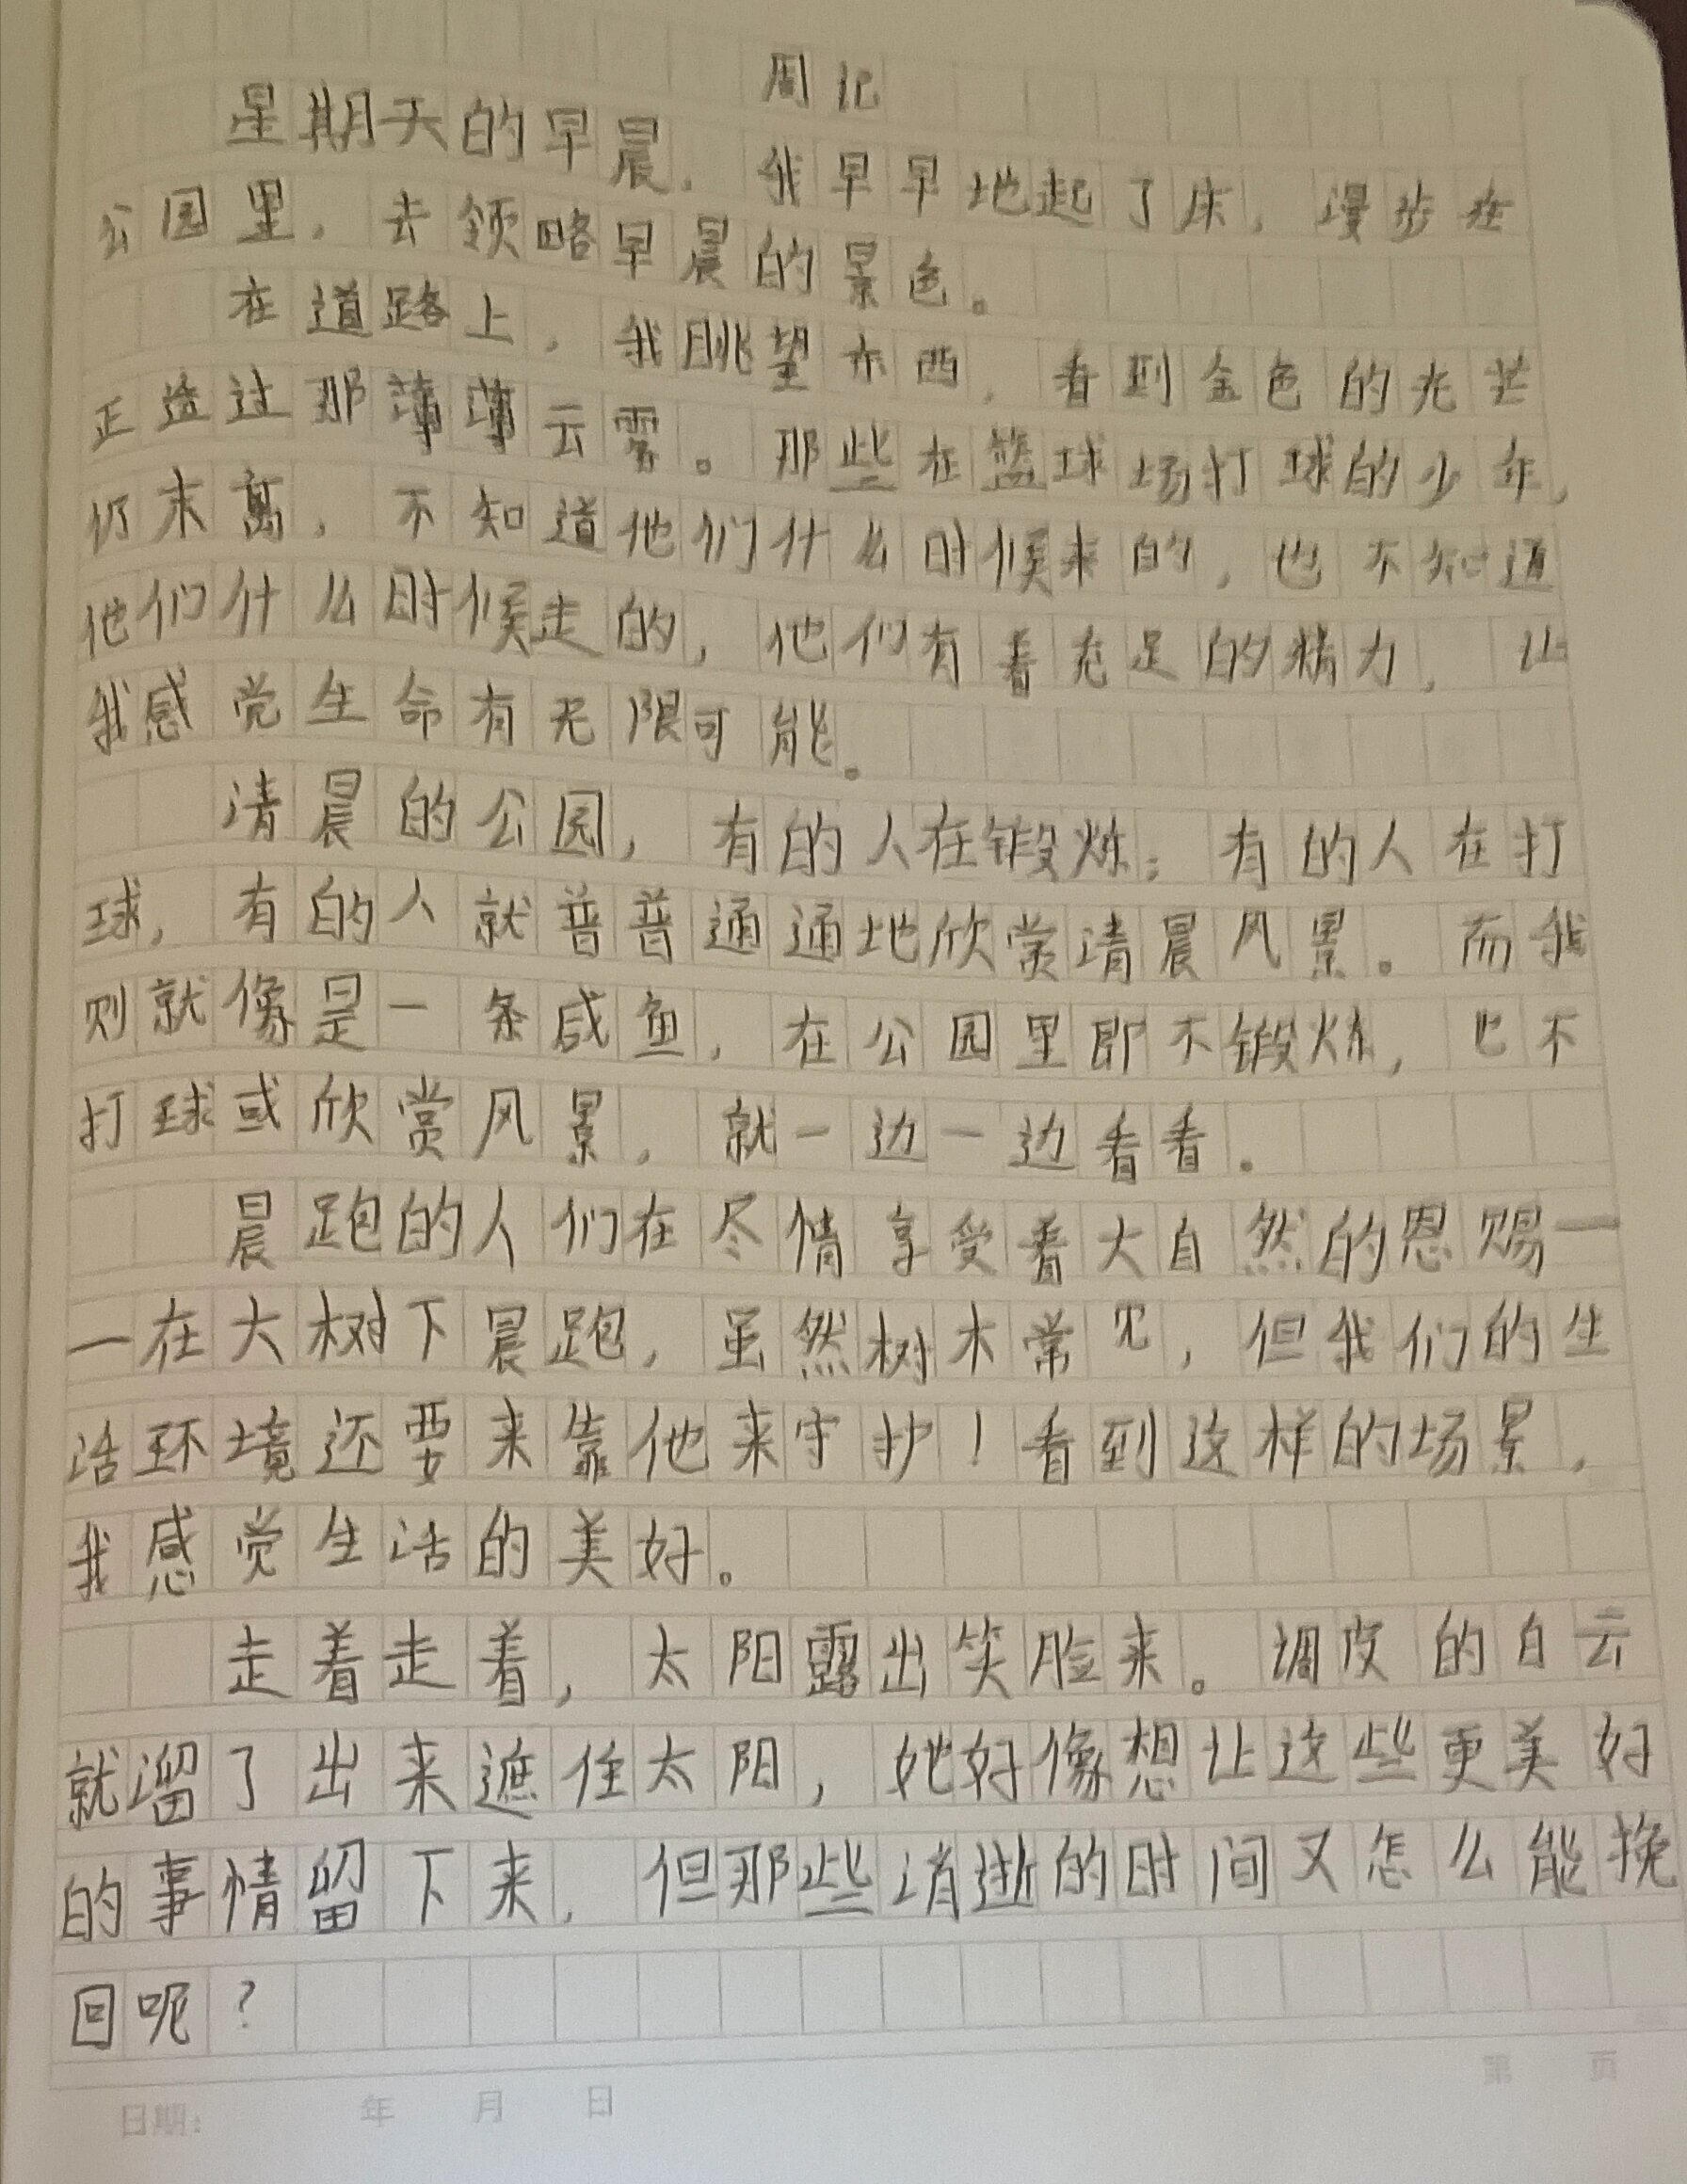 周记
星期天的早晨，我早早地起了床，漫步在
公园里，去领略早晨的景色。
在道路上，我眺望东西，看到金色的光芒
正透过那薄薄云雾。那些在篮球场打球的少年，
仍未离，不知道他们什么时候来的，也不知道
他们什么时候走的，他们有着充足的精力，让
我感觉生命有无限可能。
清晨的公园，有的人在锻炼；有的人在打
球，有的人就普普通通地欣赏清晨风景。而我
则就像是一条咸鱼，在公园里即不锻炼，也不
打球或欣赏风景，就一边一边看看。
晨跑的人们在尽情享受着大自然的恩赐一
一在大树下晨跑，虽然树木常见，但我们的生
活环境还要来靠他来守护！看到这样的场景，
我感觉生活的美好。
走着走着，太阳露出笑脸来。调皮的白云
就溜了出来遮住太阳，她好像想让这些更美好
的事情留下来，但那些消逝的时间又怎么能挽
回呢？
日期： 年 月 日 第 页